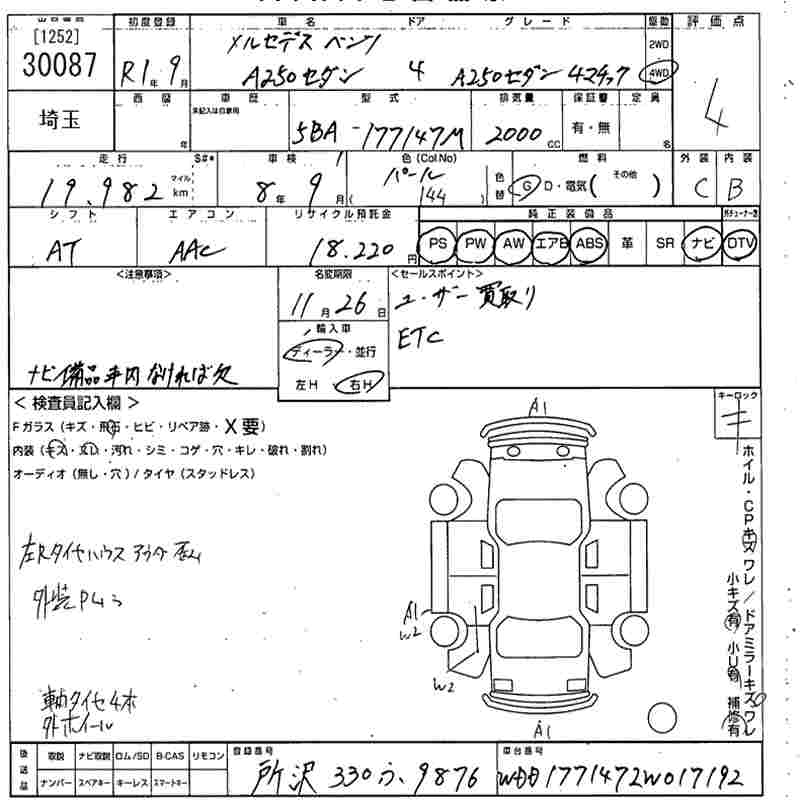 [1252]
30087
初度登録
R1年 9月
車名 ドア グレード
メルセデス ベンツ
A250セダン 4 A250セダン 4マチック
駆動
2WD
4WD
評価点
4
埼玉
西暦
年
車歴
未記入は自家用
型式
5BA -177147M
排気量
2000 CC
保証書
有・無
定員
名
走行 S#*
19,982 マイル km
車検
8年 9月
色 (Col No)
パール
(144)
色替
燃料
G D・電気 (その他)
外装 内装
C B
シフト
AT
エアコン
AAC
リサイクル預託金
18.220円
純正装備品
PS PW AW エアB ABS 革 SR ナビ DTV
<注意事項>
ナビ備品車内なければ欠
名変期限
11月 26日
輸入車
ディーラー・並行
左H・右H
<セールスポイント>
ユーザー買取り
ETC
< 検査員記入欄 >
Fガラス (キズ・飛石・ヒビ・リペア跡・X要)
内装 (キズ・スレ・汚れ・シミ・コゲ・穴・キレ・破れ・割れ)
オーディオ (無し・穴) / タイヤ (スタッドレス)
キーロック
キ
左Rタイヤハウス アウター
外装
外ホイール
A1
A1
W2
W2
A1
ホイル・CPキズ ワレ / ドアミラーキズ ワレ
小キズ有 小U有 補修有
後送品
取説 ナビ取説 ロム/SD B-CAS リモコン
ナンバー スペアキー キーレス スマートキー
登録番号
所沢 330 9876
車台番号
WDD1771472W017192